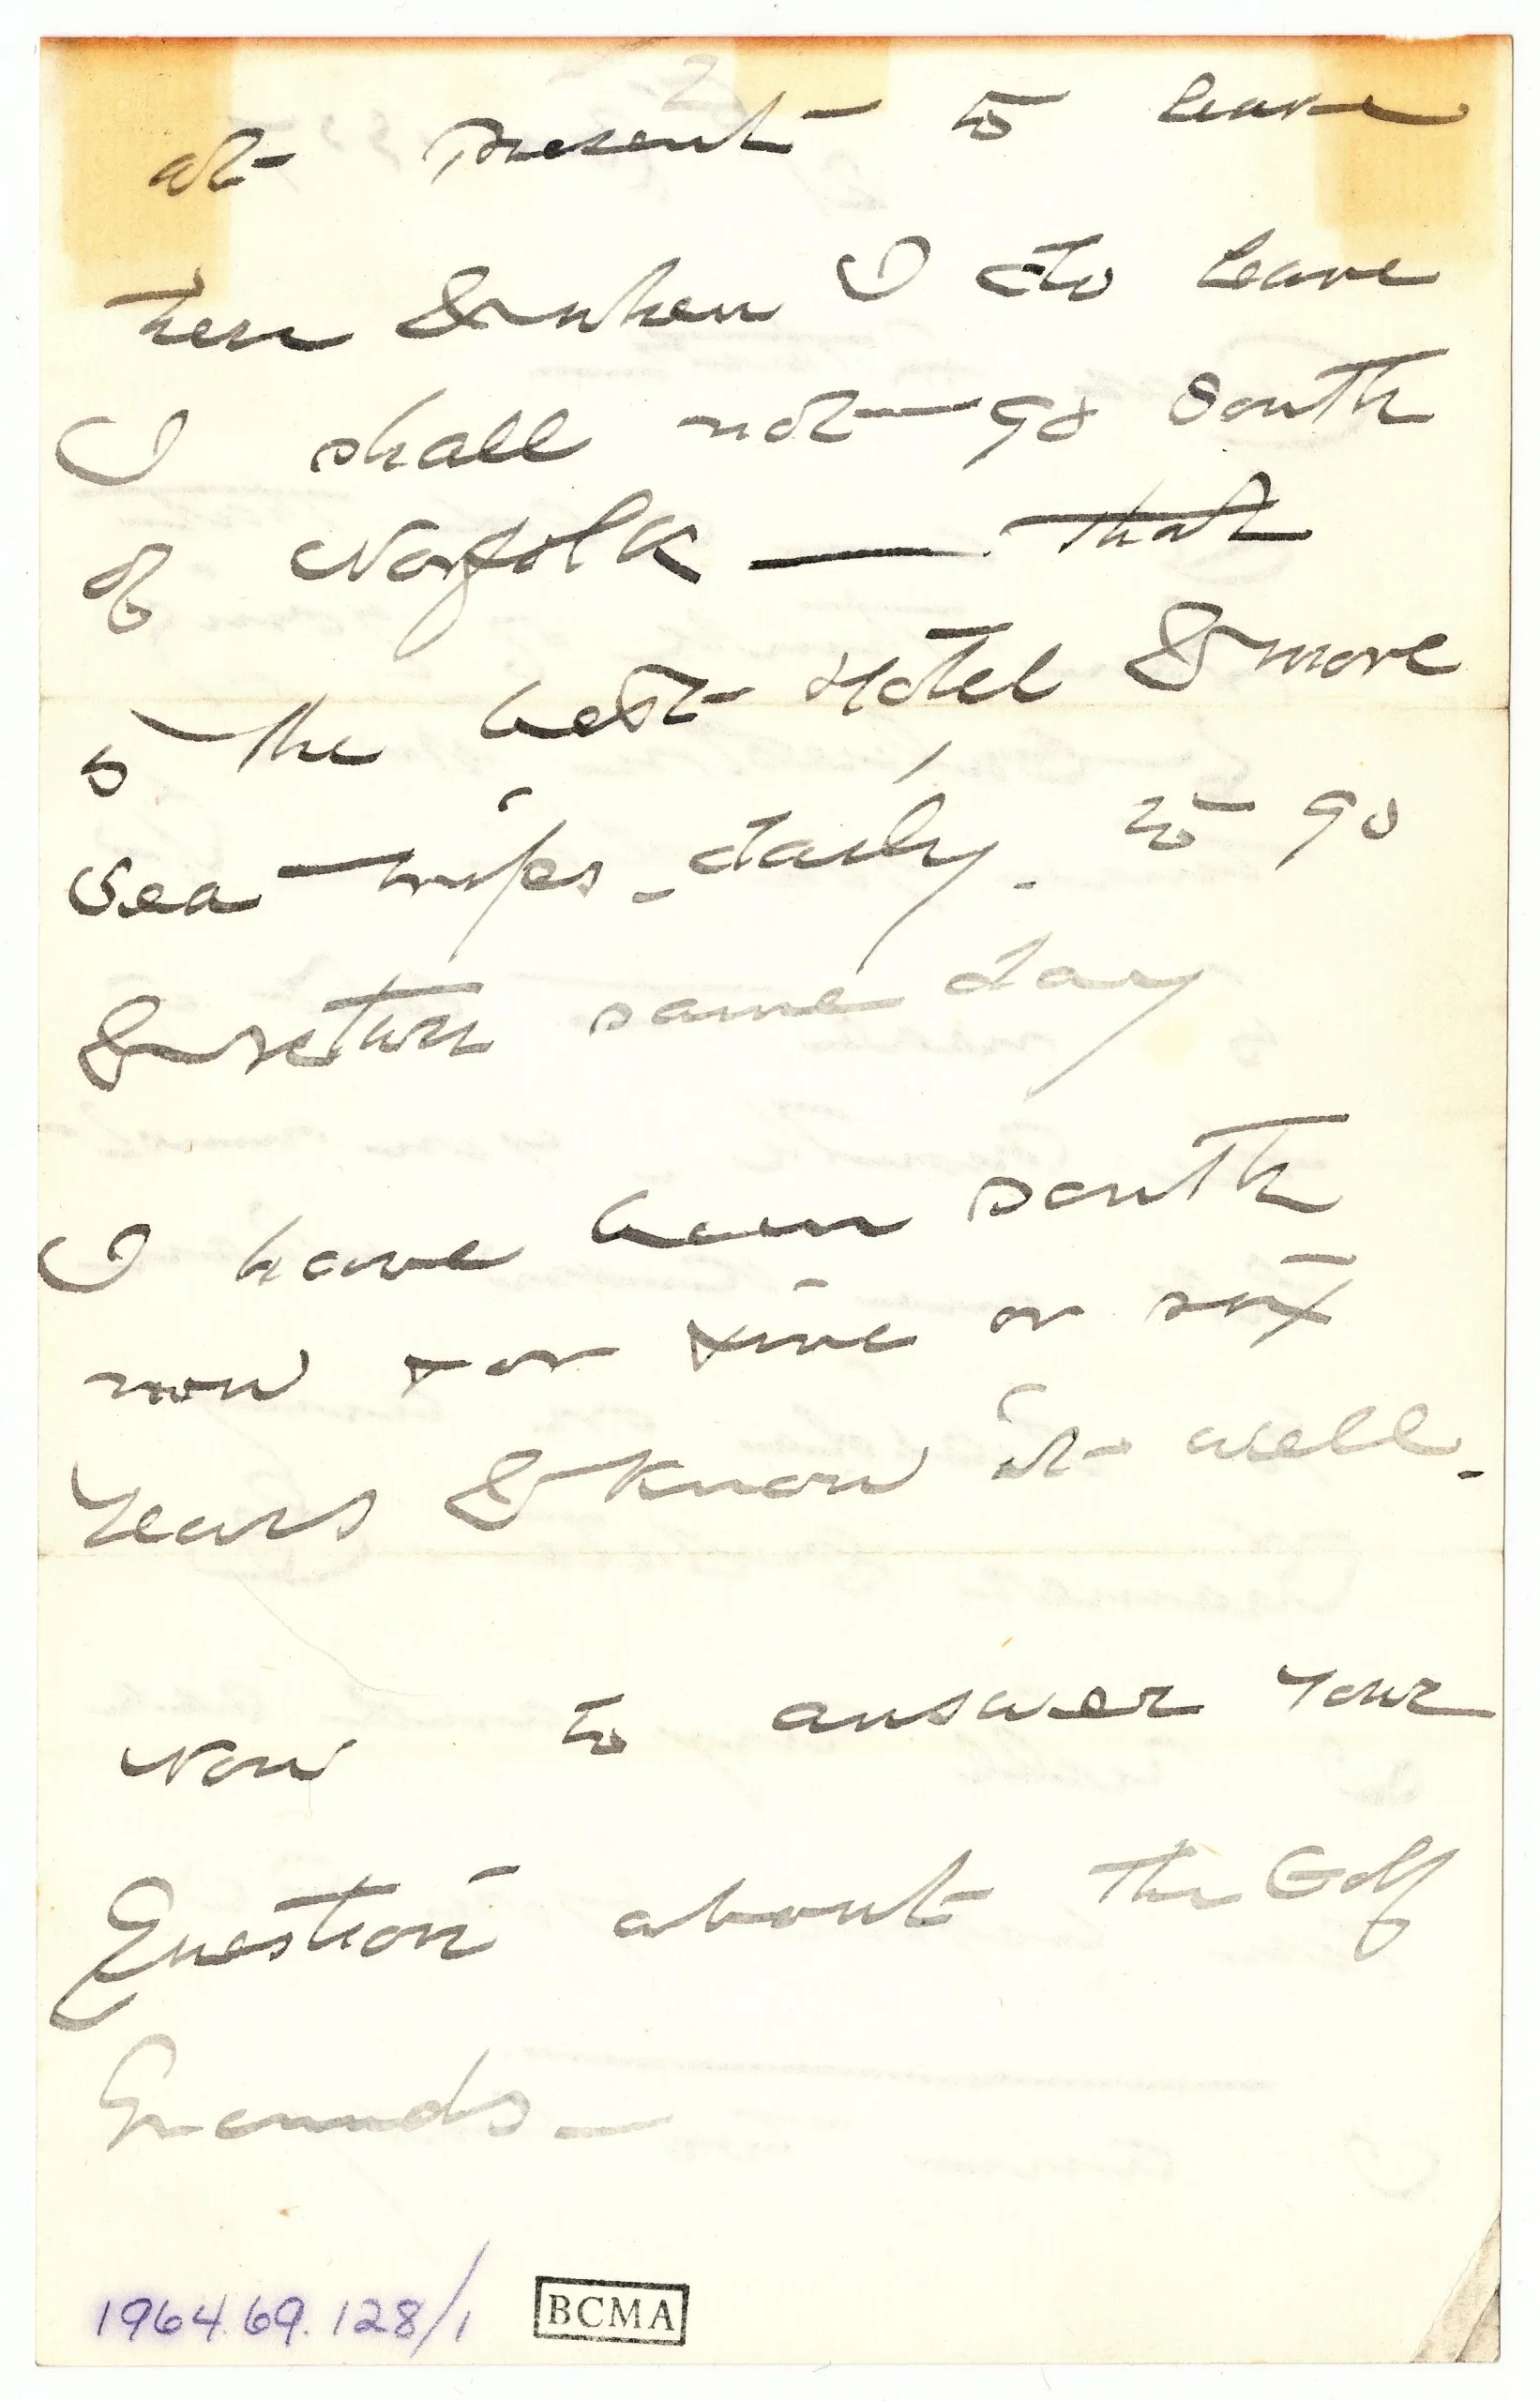 at present to leave
here & when I do leave
I shall not go South
of Norfolk — that
is the best Hotel & more
Sea trips - daily - to go
& return same day
I have been south
now for five or six
Years & know it well.
Now to answer your
Question about the Golf
Grounds —
1964.69.128/1
BCMA